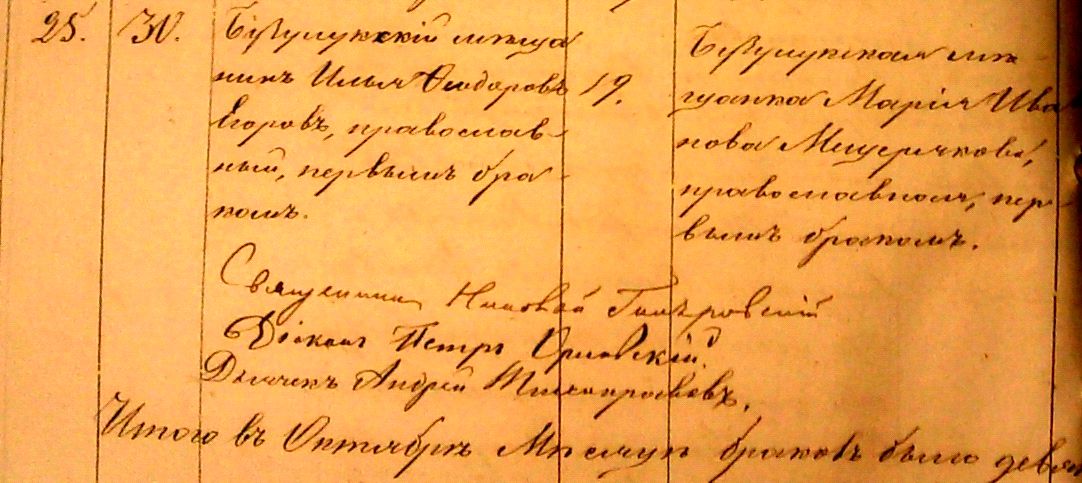 25. 30. Бузулукскій мѣща
нинъ Илья Ѳеодоровъ
Егоровъ, православ-
ный, первымъ бра-
комъ.
19.
Бузулукская мѣ-
щанка Марія Ива
нова Мещерякова,
православная, пер-
вымъ бракомъ.
Священникъ Николай
Діаконъ Петръ Орловскій.
Дьячекъ Андрей
Итого въ Октябрѣ Мѣсяцѣ браковъ было девять